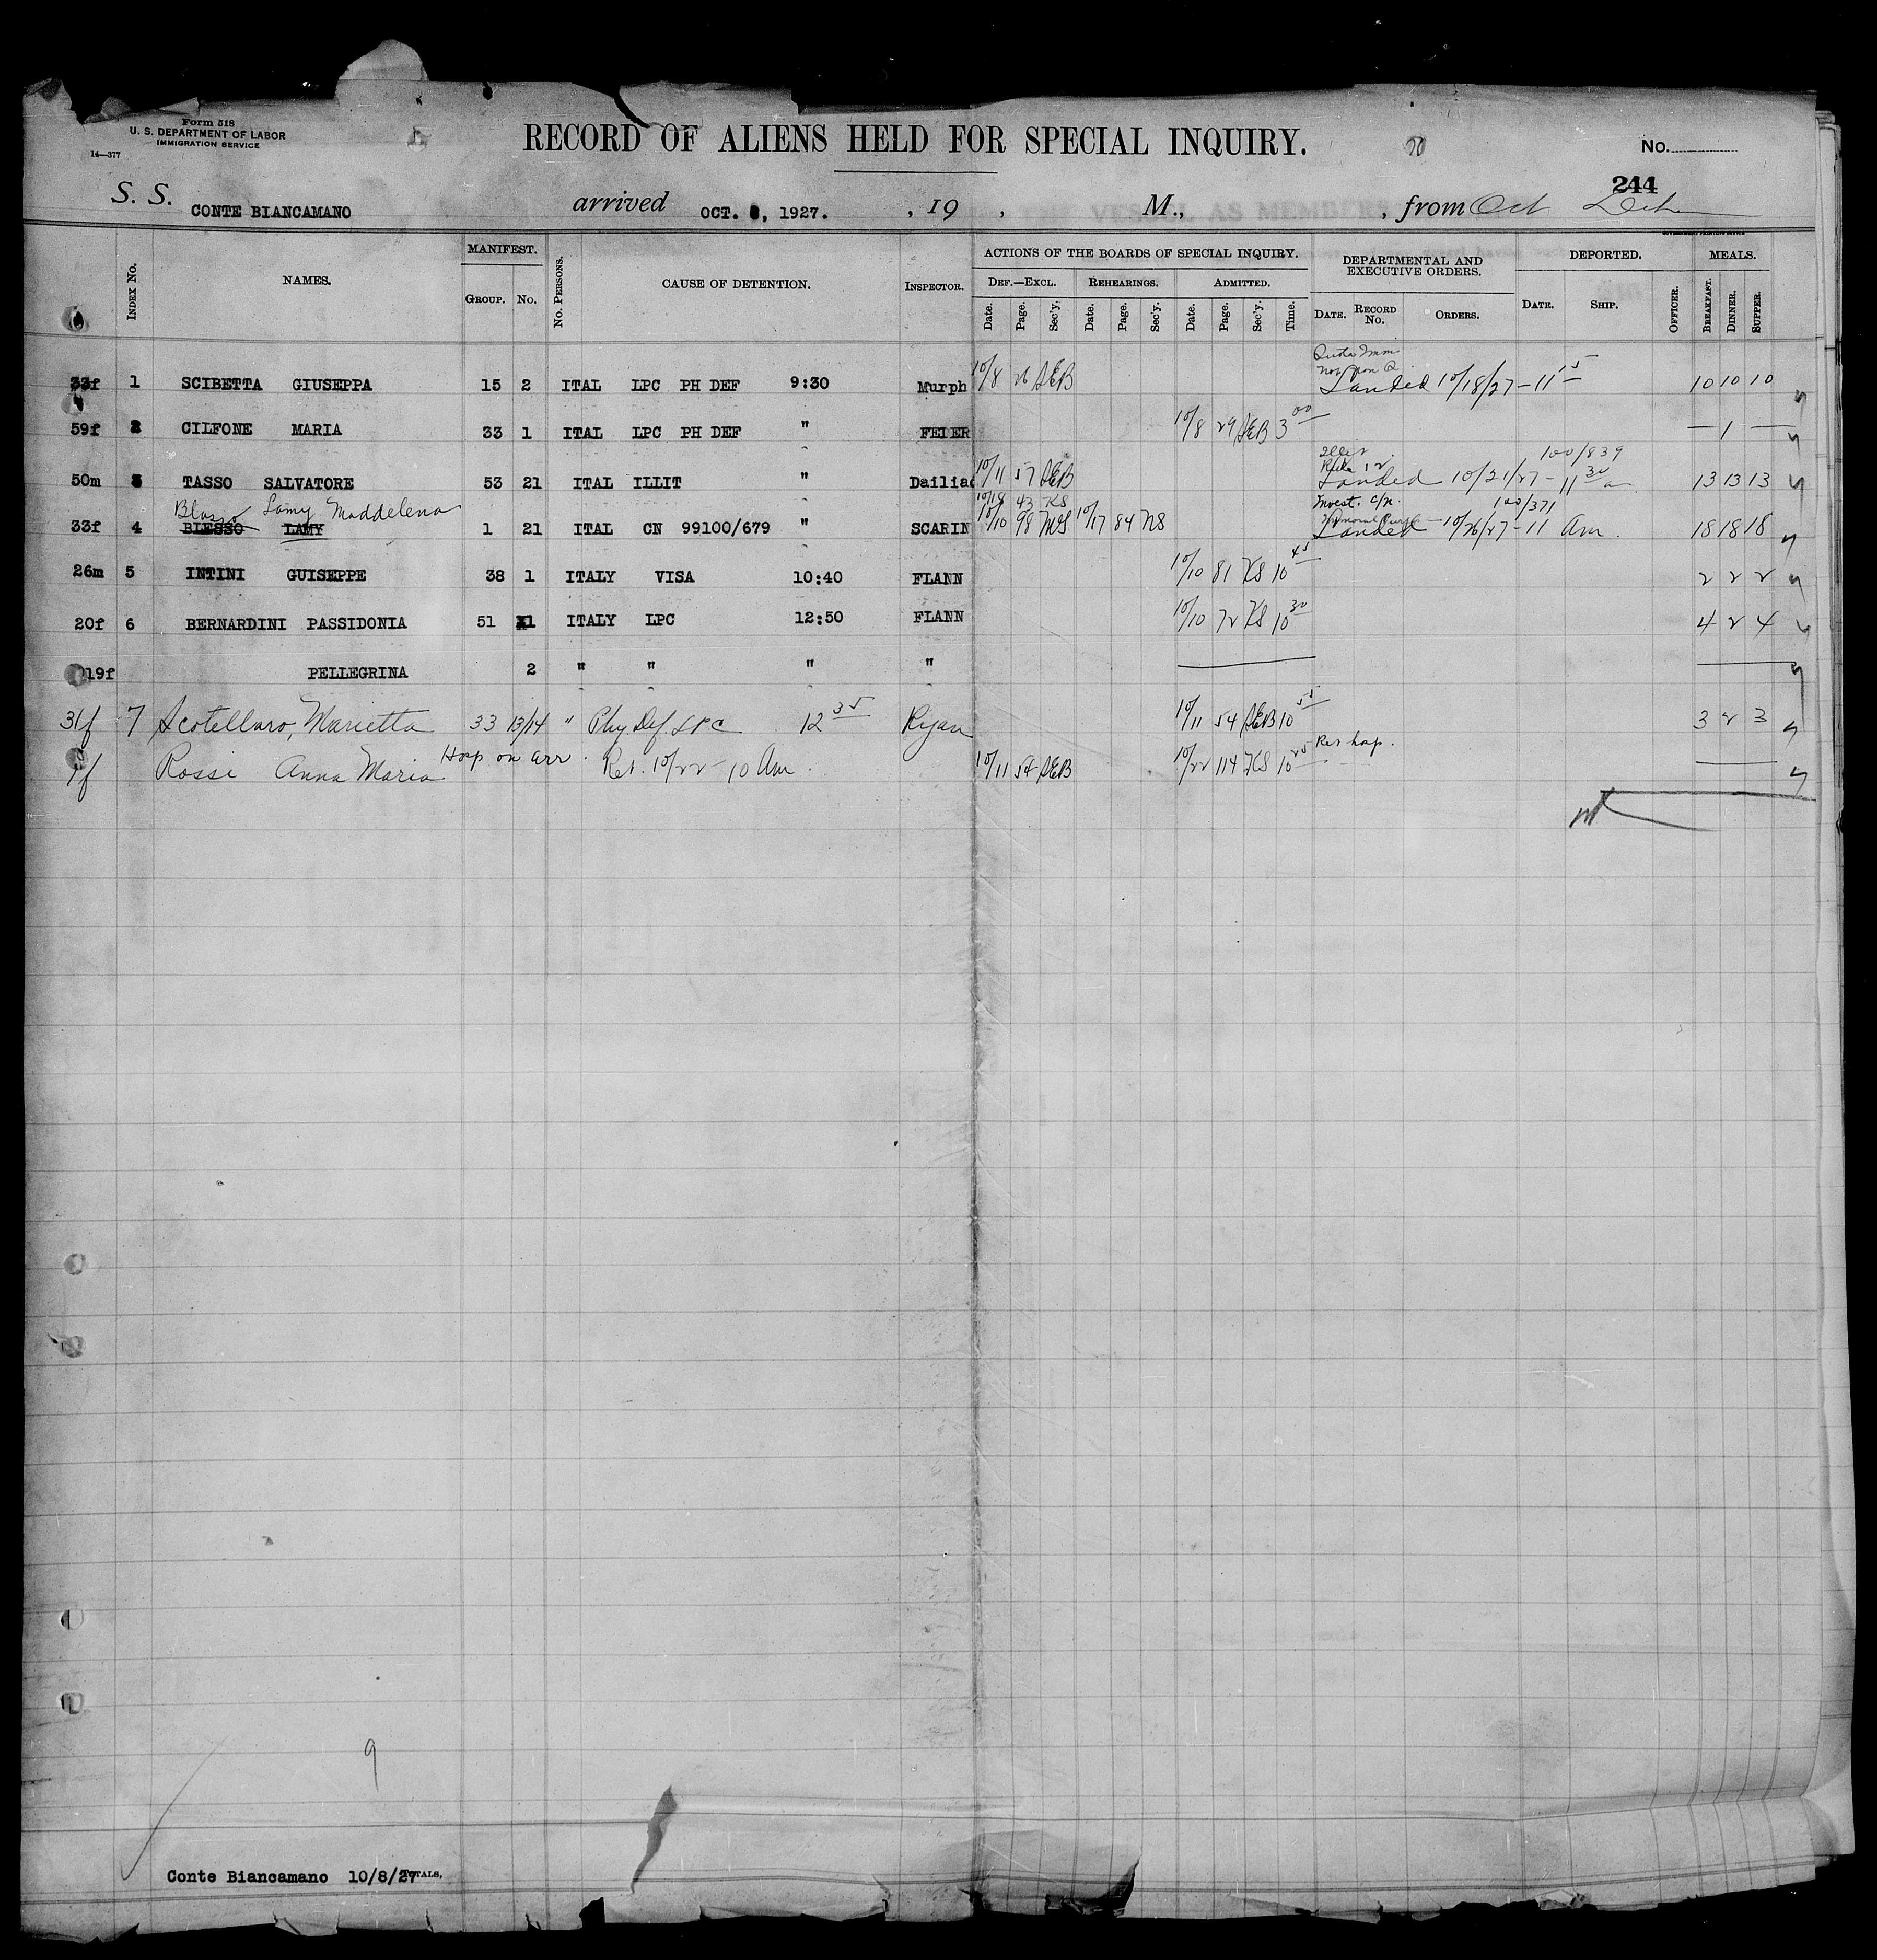 Form 518
U. S. DEPARTMENT OF LABOR
IMMIGRATION SERVICE
14—377
RECORD OF ALIENS HELD FOR SPECIAL INQUIRY.
No.
244
S. S. CONTE BIANCAMANO arrived OCT. 8, 1927. , 19 , M., , from Oct
Index No. NAMES. MANIFEST. Group. No. No. Persons. CAUSE OF DETENTION. Inspector. ACTIONS OF THE BOARDS OF SPECIAL INQUIRY. Def.—Excl. Date. Page. Sec'y. Rehearings. Date. Page. Sec'y. Admitted. Date. Page. Sec'y. Time. DEPARTMENTAL AND EXECUTIVE ORDERS. Date. Record No. Orders. DEPORTED. Date. Ship. Officer. MEALS. Breakfast. Dinner. Supper.
33f 1 SCIBETTA GIUSEPPA 15 2 ITAL LPC PH DEF 9:30 Murph 10/8 26 SEB Landed 10/18/27 - 11 15 10 10 10
59f 2 CILFONE MARIA 33 1 ITAL LPC PH DEF " FEIER 10/8 29 SEB 3 00 — 1 —
100/839
50m 3 TASSO SALVATORE 53 21 ITAL ILLIT " Dailia 10/11 57 SEB Landed 10/21/27 - 11 30 a 13 13 13
Blasso Lamy Maddelena 10/18 43 KS 100/371
33f 4 BLESSO LAMY 1 21 ITAL CN 99100/679 " SCARIN 10/10 98 MS 10/17 84 NS Landed - 10/26/27 - 11 Am. 18 18 18
26m 5 INTINI GUISEPPE 38 1 ITALY VISA 10:40 FLANN 10/10 81 KS 10 45 2 2 2
20f 6 BERNARDINI PASSIDONIA 51 1 ITALY LPC 12:50 FLANN 10/10 72 KS 10 30 4 2 4
19f PELLEGRINA 2 " " " "
31f 7 Scotellaro, Marietta 33 13/14 " Phy Def. LPC 12 35 Ryan 10/11 54 SEB 10 55 3 2 3
9f Rossi Anna Maria Hosp on arr. Ret. 10/22 - 10 Am. 10/11 54 SEB 10/22 114 KS 10 25 Res hosp.
9
Conte Biancamano 10/8/27 Totals.